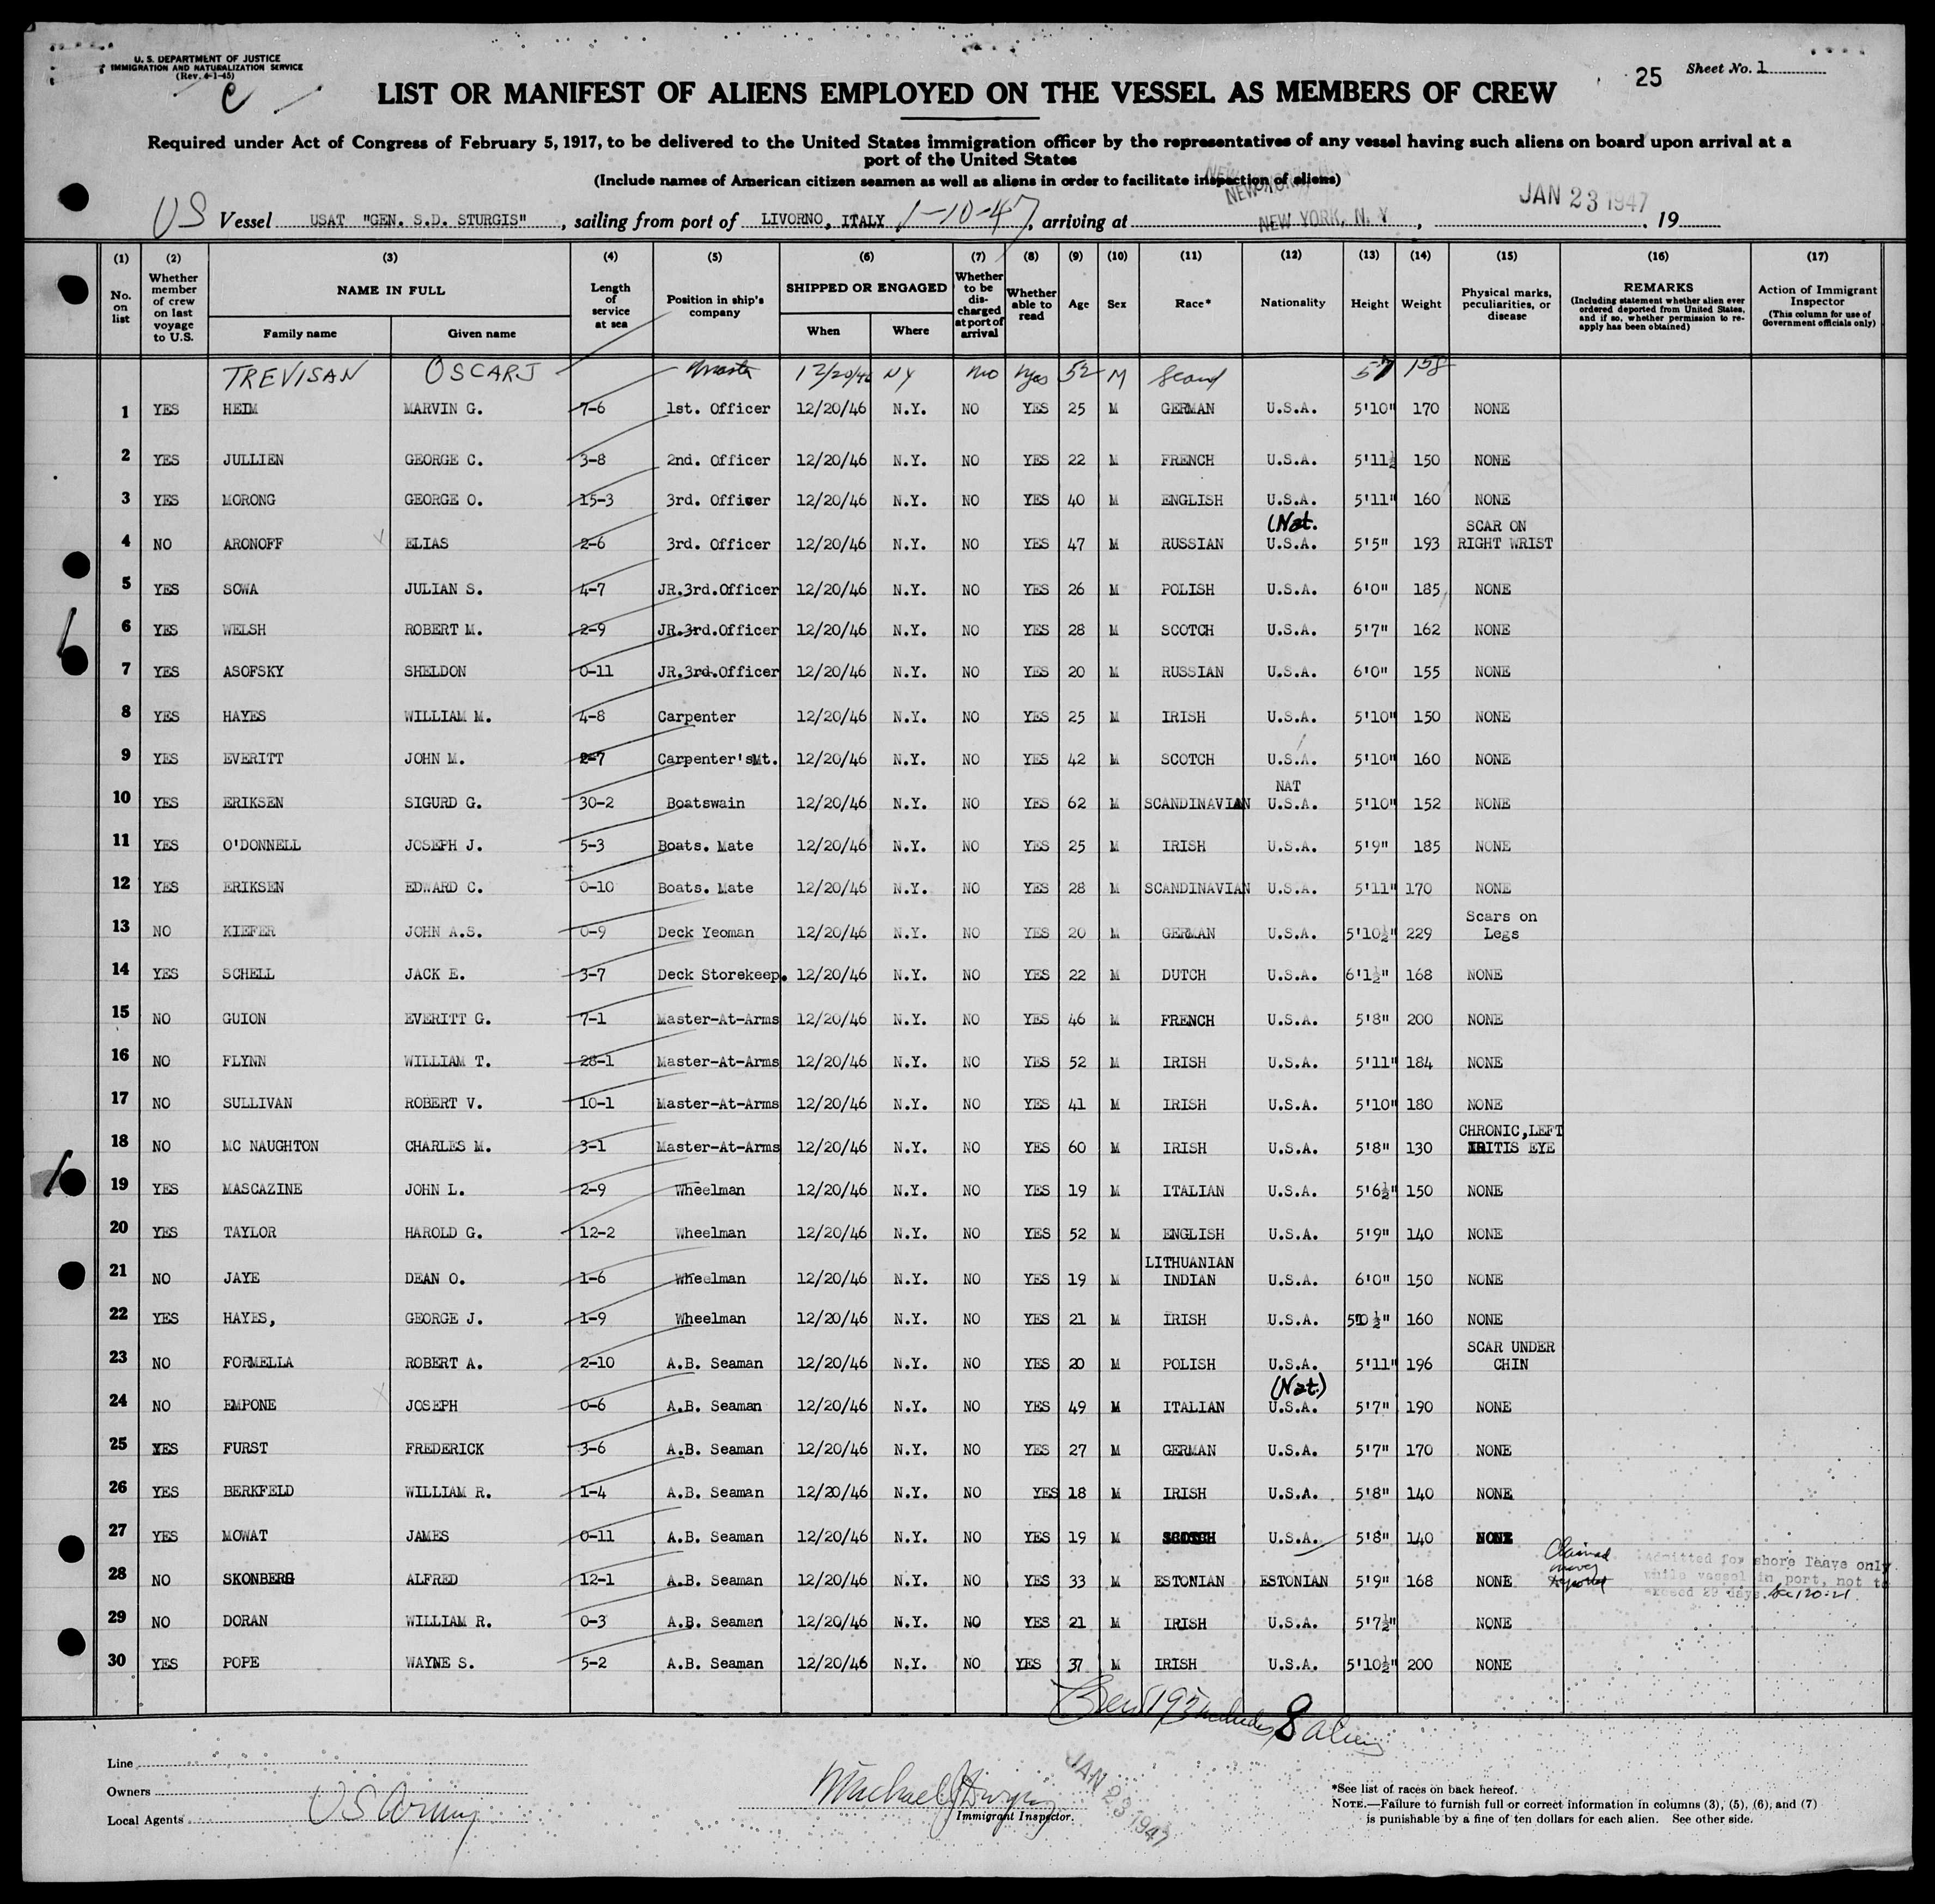 U. S. DEPARTMENT OF JUSTICE
IMMIGRATION AND NATURALIZATION SERVICE
(Rev. 4-1-45)
25 Sheet No. 1
LIST OR MANIFEST OF ALIENS EMPLOYED ON THE VESSEL AS MEMBERS OF CREW
Required under Act of Congress of February 5, 1917, to be delivered to the United States immigration officer by the representatives of any vessel having such aliens on board upon arrival at a
port of the United States
(Include names of American citizen seamen as well as aliens in order to facilitate inspection of aliens)
US Vessel USAT "GEN. S.D. STURGIS", sailing from port of LIVORNO, ITALY 1-10-47, arriving at NEW YORK, N. Y, JAN 23 1947, 19
(1) (2) (3) (4) (5) (6) (7) (8) (9) (10) (11) (12) (13) (14) (15) (16) (17)
No. on list
Whether member of crew on last voyage to U.S.
NAME IN FULL
Family name Given name
Length of service at sea
Position in ship's company
SHIPPED OR ENGAGED
When Where
Whether to be discharged at port of arrival
Whether able to read
Age
Sex
Race*
Nationality
Height
Weight
Physical marks, peculiarities, or disease
REMARKS
(Including statement whether alien ever ordered deported from United States, and if so, whether permission to re-apply has been obtained)
Action of Immigrant Inspector
(This column for use of Government officials only)
TREVISAN OSCAR J Master 12/20/46 NY no yes 52 M Scand 5-7 158
1 YES HEIM MARVIN G. 7-6 1st. Officer 12/20/46 N.Y. NO YES 25 M GERMAN U.S.A. 5'10" 170 NONE
2 YES JULLIEN GEORGE C. 3-8 2nd. Officer 12/20/46 N.Y. NO YES 22 M FRENCH U.S.A. 5'11½ 150 NONE
3 YES MORONG GEORGE O. 15-3 3rd. Officer 12/20/46 N.Y. NO YES 40 M ENGLISH U.S.A. 5'11" 160 NONE
(Nat. SCAR ON
4 NO ARONOFF ELIAS 2-6 3rd. Officer 12/20/46 N.Y. NO YES 47 M RUSSIAN U.S.A. 5'5" 193 RIGHT WRIST
5 YES SOWA JULIAN S. 4-7 JR.3rd.Officer 12/20/46 N.Y. NO YES 26 M POLISH U.S.A. 6'0" 185 NONE
6 YES WELSH ROBERT M. 2-9 JR.3rd.Officer 12/20/46 N.Y. NO YES 28 M SCOTCH U.S.A. 5'7" 162 NONE
7 YES ASOFSKY SHELDON 0-11 JR.3rd.Officer 12/20/46 N.Y. NO YES 20 M RUSSIAN U.S.A. 6'0" 155 NONE
8 YES HAYES WILLIAM M. 4-8 Carpenter 12/20/46 N.Y. NO YES 25 M IRISH U.S.A. 5'10" 150 NONE
9 YES EVERITT JOHN M. 2-7 Carpenter'sMt. 12/20/46 N.Y. NO YES 42 M SCOTCH U.S.A. 5'10" 160 NONE
NAT
10 YES ERIKSEN SIGURD G. 30-2 Boatswain 12/20/46 N.Y. NO YES 62 M SCANDINAVIAN U.S.A. 5'10" 152 NONE
11 YES O'DONNELL JOSEPH J. 5-3 Boats. Mate 12/20/46 N.Y. NO YES 25 M IRISH U.S.A. 5'9" 185 NONE
12 YES ERIKSEN EDWARD C. 0-10 Boats. Mate 12/20/46 N.Y. NO YES 28 M SCANDINAVIAN U.S.A. 5'11" 170 NONE
Scars on
13 NO KIEFER JOHN A.S. 0-9 Deck Yeoman 12/20/46 N.Y. NO YES 20 M GERMAN U.S.A. 5'10½" 229 Legs
14 YES SCHELL JACK E. 3-7 Deck Storekeep. 12/20/46 N.Y. NO YES 22 M DUTCH U.S.A. 6'1½" 168 NONE
15 NO GUION EVERITT G. 7-1 Master-At-Arms 12/20/46 N.Y. NO YES 46 M FRENCH U.S.A. 5'8" 200 NONE
16 NO FLYNN WILLIAM T. 28-1 Master-At-Arms 12/20/46 N.Y. NO YES 52 M IRISH U.S.A. 5'11" 184 NONE
17 NO SULLIVAN ROBERT V. 10-1 Master-At-Arms 12/20/46 N.Y. NO YES 41 M IRISH U.S.A. 5'10" 180 NONE
CHRONIC,LEFT
18 NO MC NAUGHTON CHARLES M. 3-1 Master-At-Arms 12/20/46 N.Y. NO YES 60 M IRISH U.S.A. 5'8" 130 IRITIS EYE
19 YES MASCAZINE JOHN L. 2-9 Wheelman 12/20/46 N.Y. NO YES 19 M ITALIAN U.S.A. 5'6½" 150 NONE
20 YES TAYLOR HAROLD G. 12-2 Wheelman 12/20/46 N.Y. NO YES 52 M ENGLISH U.S.A. 5'9" 140 NONE
LITHUANIAN
21 NO JAYE DEAN O. 1-6 Wheelman 12/20/46 N.Y. NO YES 19 M INDIAN U.S.A. 6'0" 150 NONE
22 YES HAYES, GEORGE J. 1-9 Wheelman 12/20/46 N.Y. NO YES 21 M IRISH U.S.A. 5'10½" 160 NONE
SCAR UNDER
23 NO FORMELLA ROBERT A. 2-10 A.B. Seaman 12/20/46 N.Y. NO YES 20 M POLISH U.S.A. 5'11" 196 CHIN
(Nat.)
24 NO EMPONE JOSEPH 0-6 A.B. Seaman 12/20/46 N.Y. NO YES 49 M ITALIAN U.S.A. 5'7" 190 NONE
25 YES FURST FREDERICK 3-6 A.B. Seaman 12/20/46 N.Y. NO YES 27 M GERMAN U.S.A. 5'7" 170 NONE
26 YES BERKFELD WILLIAM R. 1-4 A.B. Seaman 12/20/46 N.Y. NO YES 18 M IRISH U.S.A. 5'8" 140 NONE
27 YES MOWAT JAMES 0-11 A.B. Seaman 12/20/46 N.Y. NO YES 19 M SCOTCH U.S.A. 5'8" 140 NONE
28 NO SKONBERG ALFRED 12-1 A.B. Seaman 12/20/46 N.Y. NO YES 33 M ESTONIAN ESTONIAN 5'9" 168 NONE Claimed never deported Admitted for shore leave only while vessel in port, not to exceed 29 days.
29 NO DORAN WILLIAM R. 0-3 A.B. Seaman 12/20/46 N.Y. NO YES 21 M IRISH U.S.A. 5'7½" NONE
30 YES POPE WAYNE S. 5-2 A.B. Seaman 12/20/46 N.Y. NO YES 37 M IRISH U.S.A. 5'10½" 200 NONE
Crew 195 includes 8 aliens
Line
Owners
Local Agents US Army
Immigrant Inspector.
JAN 23 1947
*See list of races on back hereof.
NOTE.—Failure to furnish full or correct information in columns (3), (5), (6), and (7)
is punishable by a fine of ten dollars for each alien. See other side.